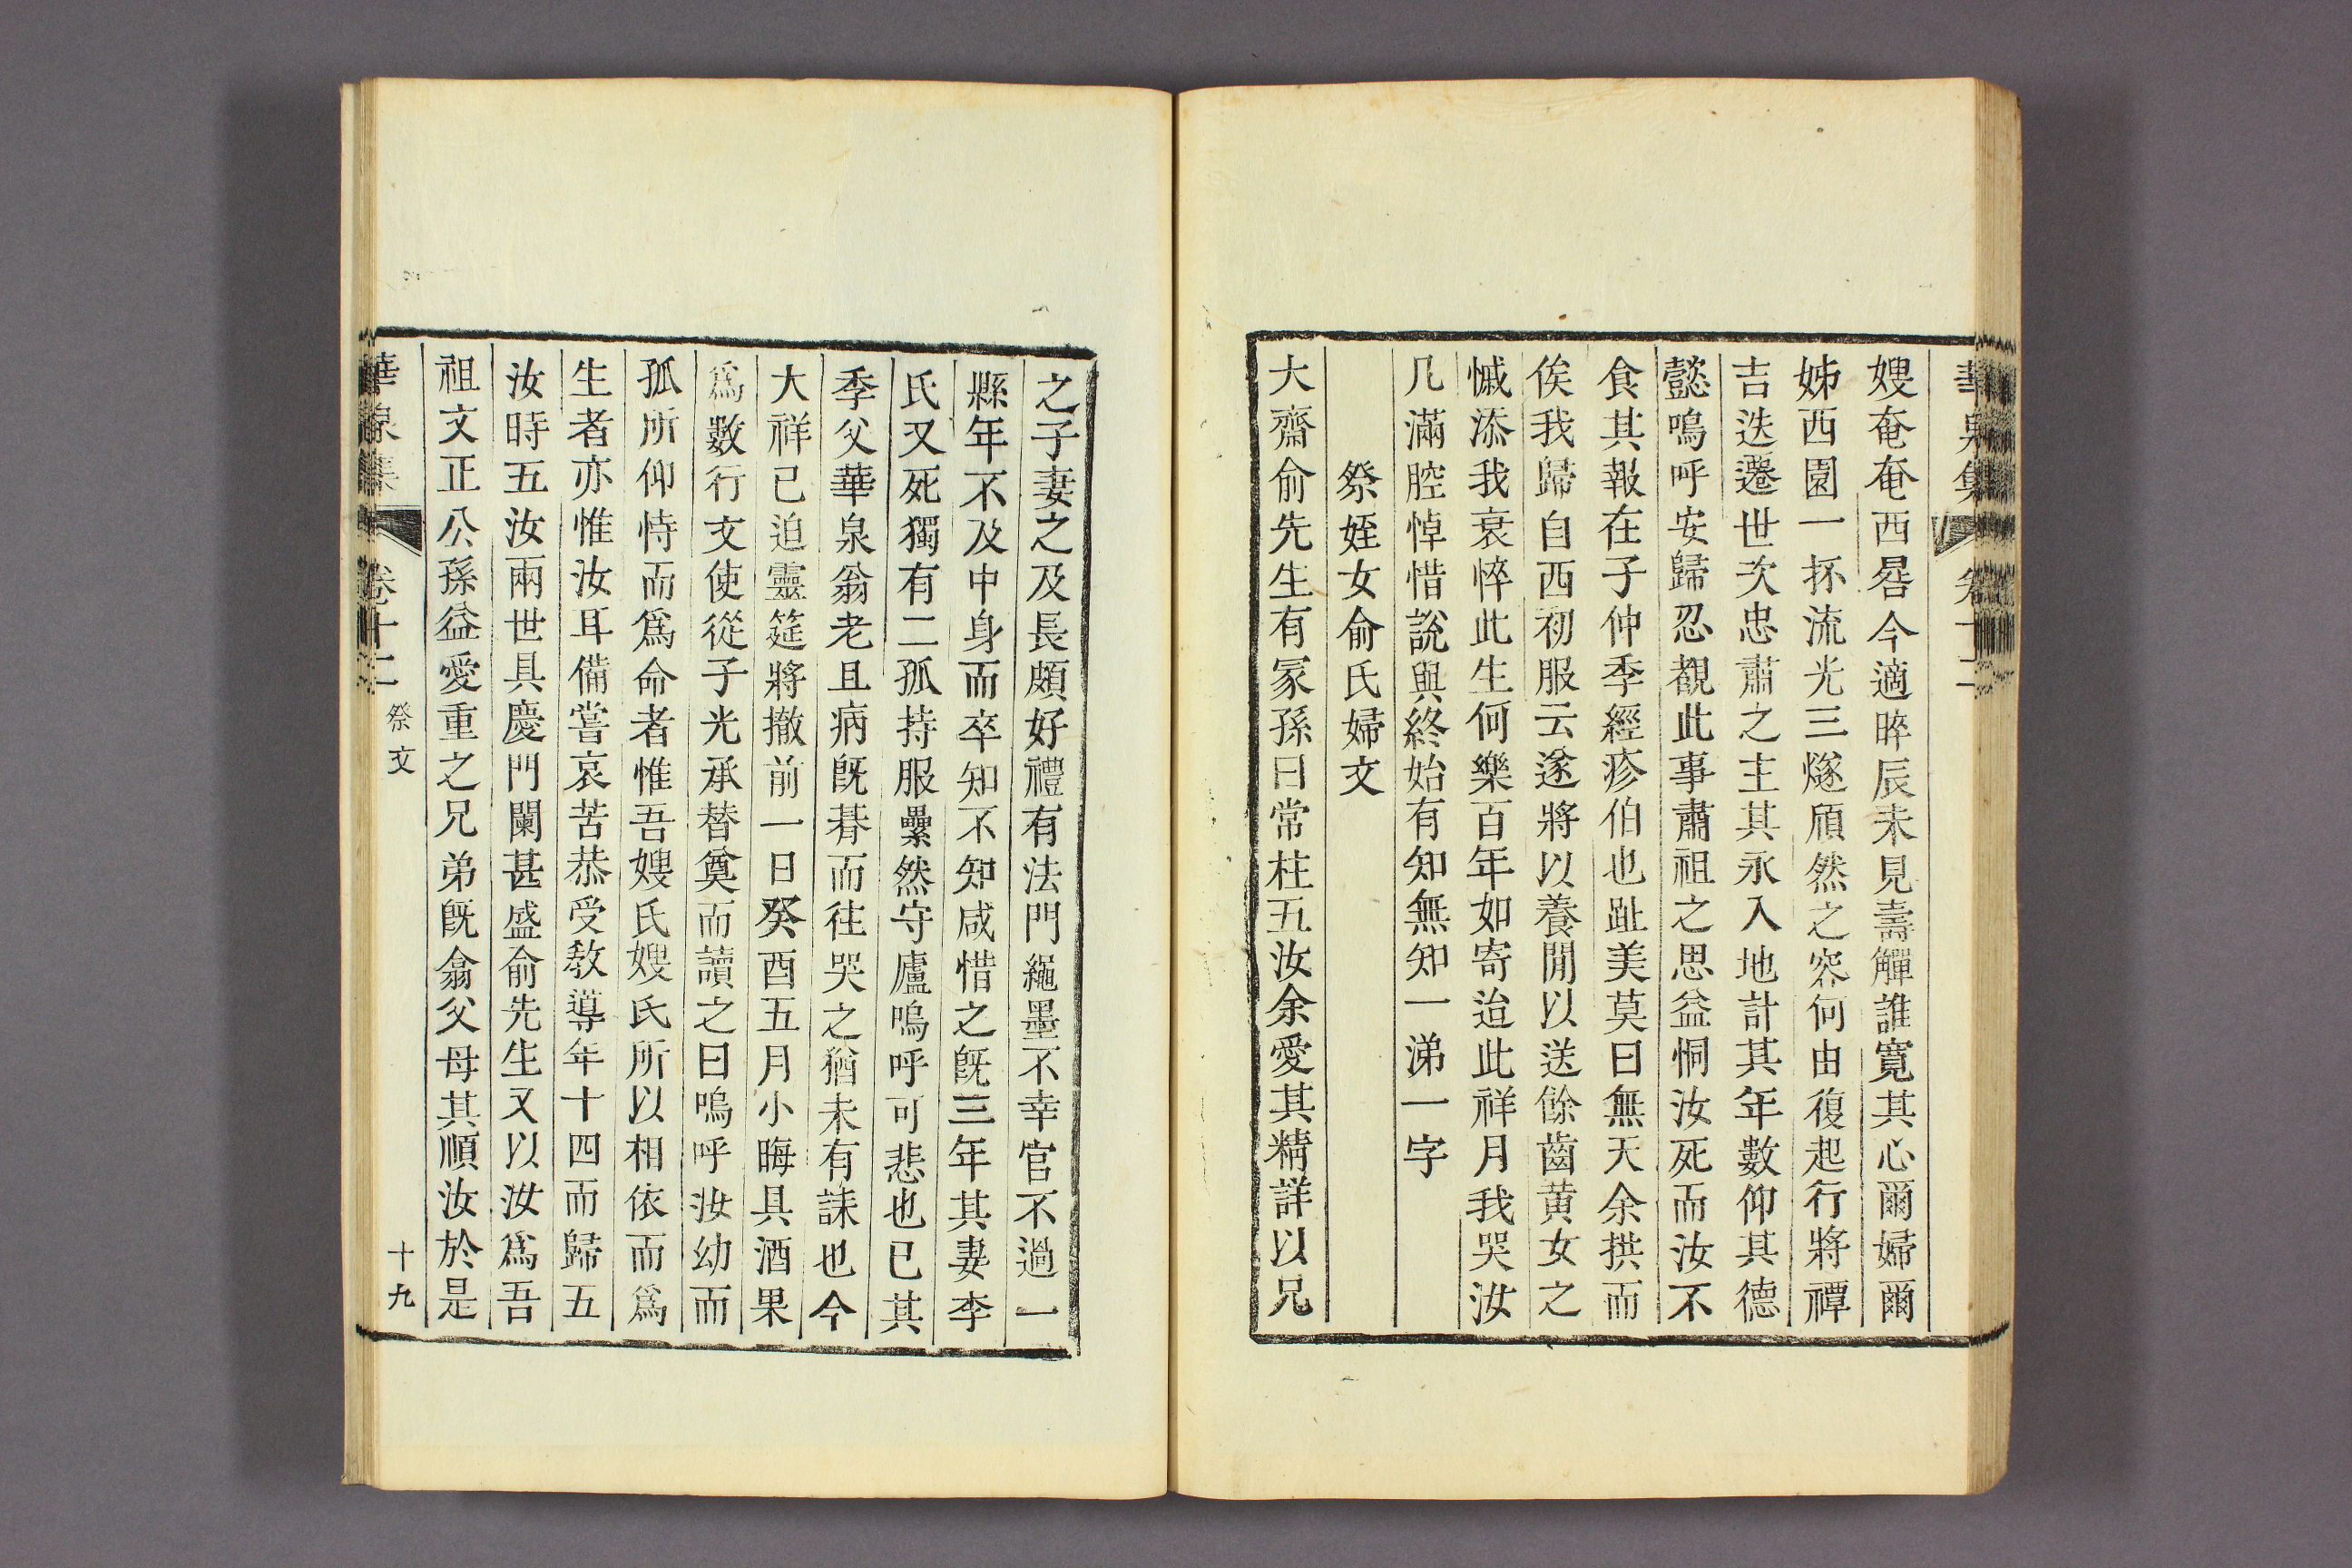 華泉集 卷十二
嫂奄奄西晷今適晬辰未見壽觶誰寬其心爾婦爾
姊西園一抔流光三燧頎然之容何由復起行將禫
吉迭遷世次忠肅之主其永入地計其年數仰其德
懿嗚呼安歸忍覩此事肅祖之思益恫汝死而汝不
食其報在子仲季經疹伯也趾美莫曰無天余拱而
俟我歸自西初服云遂將以養閒以送餘齒黄女之
慽添我衰悴此生何樂百年如寄迨此祥月我哭汝
几滿腔悼惜說與終始有知無知一涕一字
祭姪女俞氏婦文
大齋俞先生有冢孫曰常柱五汝余愛其精詳以兄
之子妻之及長頗好禮有法門繩墨不幸官不過一
縣年不及中身而卒知不知咸惜之旣三年其妻李
氏又死獨有二孤持服纍然守廬嗚呼可悲也已其
季父華泉翁老且病旣朞而往哭之猶未有誄也今
大祥已迫靈筵將撤前一日癸酉五月小晦具酒果
爲數行文使從子光承替奠而讀之曰嗚呼汝幼而
孤所仰恃而爲命者惟吾嫂氏嫂氏所以相依而爲
生者亦惟汝耳備嘗哀苦恭受敎導年十四而歸五
汝時五汝兩世具慶門闌甚盛俞先生又以汝爲吾
祖文正公孫益愛重之兄弟旣翕父母其順汝於是
華泉集 卷十二 祭文 十九